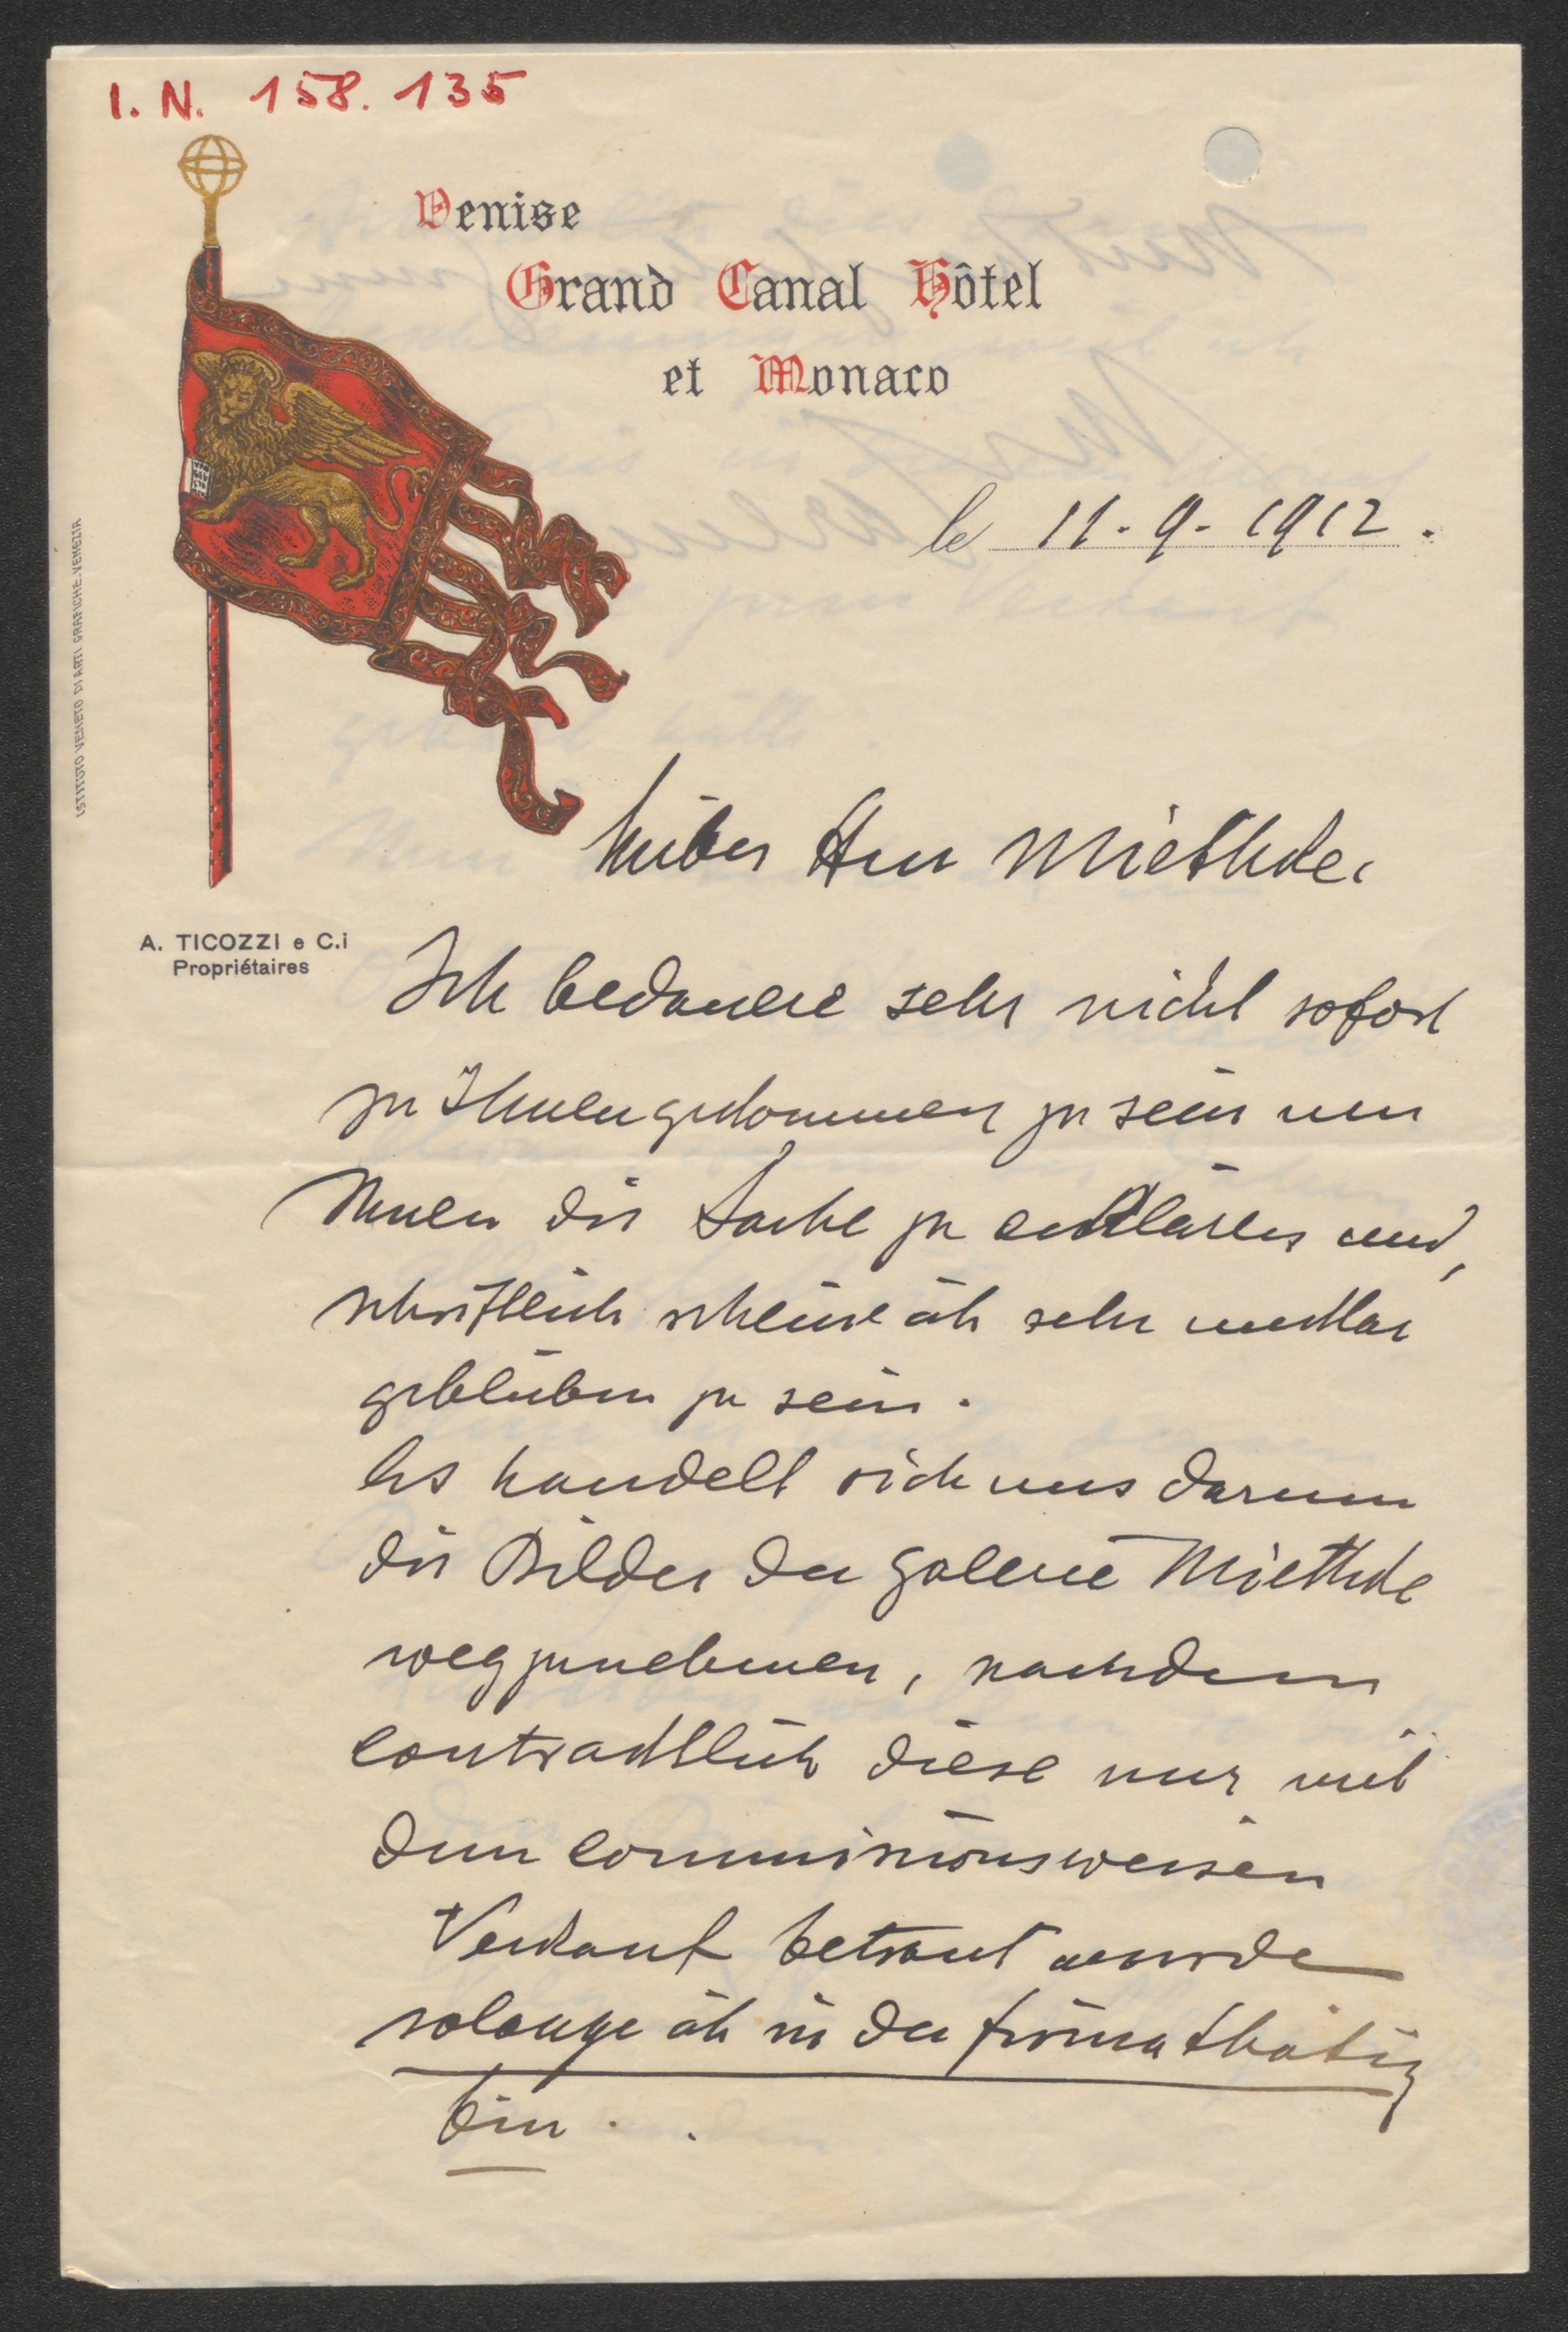 I. N. 158. 135
Venise
Grand Canal Hôtel
et Monaco
le 11. 9. 1912.
ISTITUTO VENETO DI ARTI GRAFICHE. VENEZIA
Lieber Herr Miethke.
A. TICOZZI e C.i
Propriétaires
Ich bedauere sehr nicht sofort
zu Ihnen gekommen zu sein um
Ihnen die Sache zu erklären und,
schriftlich scheine ich sehr unklar
geblieben zu sein.
Es handelt sich uns darum
die Bilder der Galerie Miethke
wegzunehmen, nachdem
contractlich diese nur mit
dem commissionsweisen
Verkauf betraut wurde
solange ich in der Firma thätig
bin.